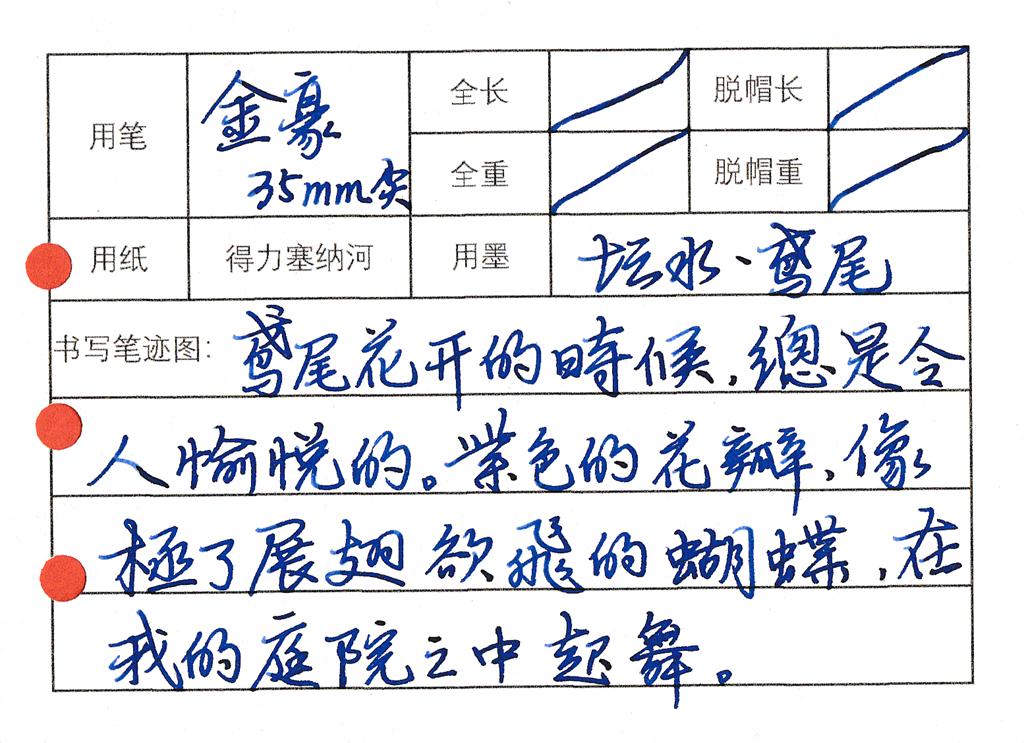 用笔 金豪 35mm尖 全长 脱帽长
全重 脱帽重
用纸 得力塞纳河 用墨 坛水、鸢尾
书写笔迹图：鸢尾花开的時候，總是令
人愉悦的。紫色的花瓣，像
極了展翅欲飛的蝴蝶，在
我的庭院之中起舞。